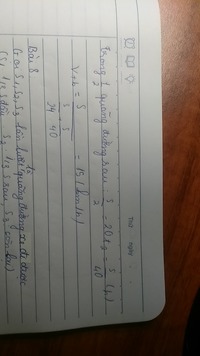 Thứ ngày
Trong 1/2 quãng đường sau: s/2 = 20 x 2 = s/40 (h)
Vtb = s / (s/24 + s/40) = 15 (km/h)
Bài 8
Gọi S1, S2, S3 lần lượt là quãng đường xe đi được
(S1 1/3 S đầu, S2 1/3 S sau, S3 còn lại)